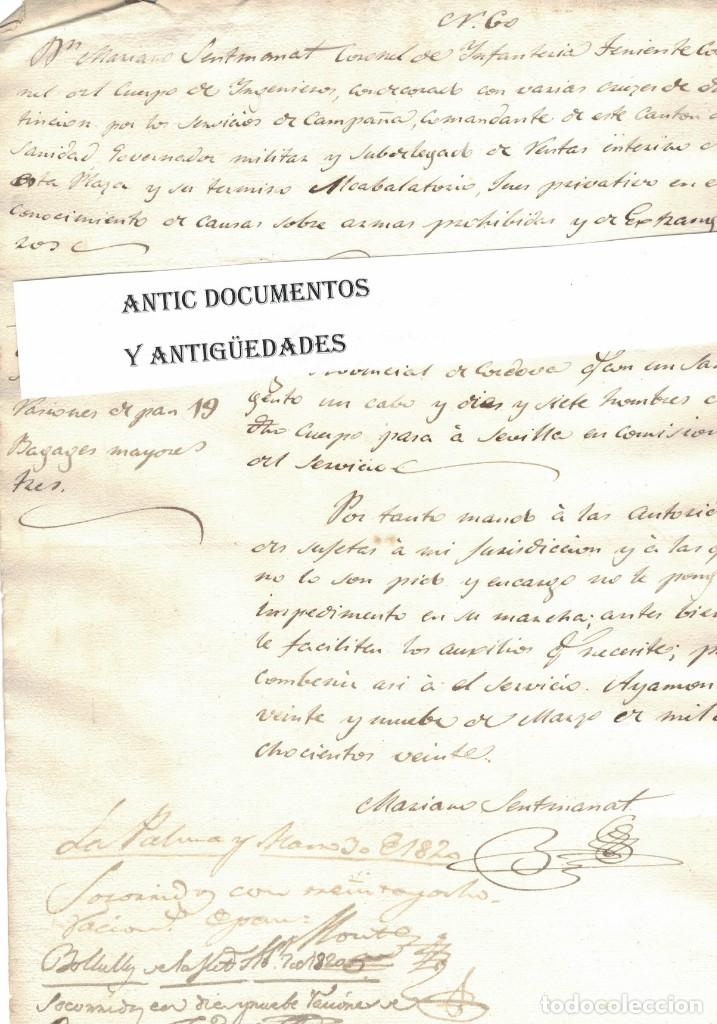 N. 60
Dn Mariano Sentmanat Coronel de Infanteria Teniente Co
nel del Cuerpo de Ingenieros, condecorado con varias cruzes de di
tincion por los servicios de Campaña, comandante de este Canton d
Sanidad, Governador militar y subdelegado de Rentas interino d
esta Plaza y su termino Alcabalatorio, Jues privativo en e
conocimiento de causas sobre armas prohibidas y de Extrang
ros
ANTIC DOCUMENTOS
Y ANTIGÜEDADES
Provincial de Cordova qe con un Sar
gento un cabo y dies y siete hombres d
dho Cuerpo pasa à Sevilla en comision
del servicio
Raciones de pan 19
Bagages mayores
tres.
Por tanto mando à las autorid
des sujetas à mi jurisdiccion y à las q
no lo son pido y encargo no le pong
impedimento en su marcha; antes bien
le faciliten los auxilios qe necesite; p
combenir asi à el servicio. Ayamon
veinte y nuebe de Marzo de mil
chocientos veinte.
Mariano Sentmanat
La Palma y Marzo 30 de 1820
Socorrido con
Racion.s de pan
Montes
Socorrido con diez y nuebe raciones de
todocoleccion